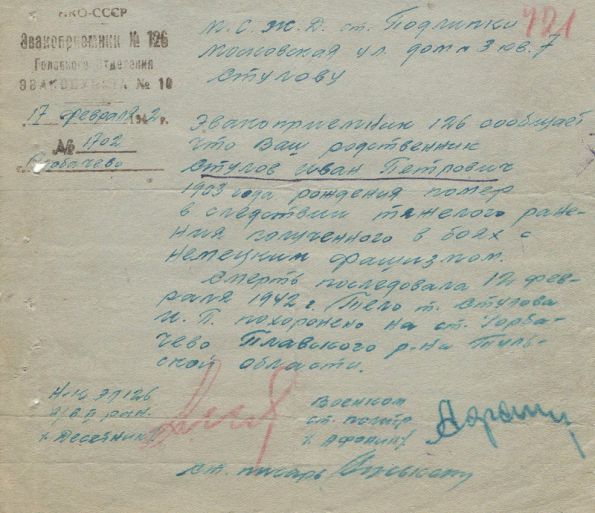 НКО-СССР
Эвакоприемник № 126
Головного Отделения
ЭВАКОПУНКТА № 10
17 февраля 1942 г.
№ 1702
Горбачево
М. С. Ж. Д. ст. Подлипки
Московская ул. дом 3 кв. 7
Стулову
121
Эвакоприемник 126 сообщает
что Ваш родственник
Стулов Иван Петрович
1903 года рождения помер
в следствии тяжелого ране-
ния полученного в боях с
немецким фашизмом.
Смерть последовала 12 фев-
раля 1942 г. Тело т. Стулова
И. П. похоронено на ст. Горба-
чево Плавского р-на Туль-
ской области.
Н-к ЭП 126
в/в р. ран.
Военком
ст. политр.
Ст. писарь